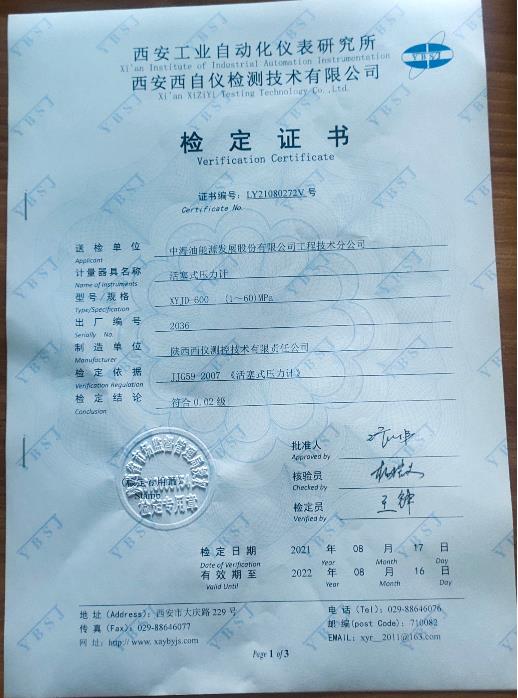 西安工业自动化仪表研究所
Xi'an Institute of Industrial Automation Instrumentation
西安西自仪检测技术有限公司
Xi'an XiZiYi Testing Technology Co.,Ltd.
YBSJ
检定证书
Verification Certificate
证书编号: LY21080272V 号
Certificate No.
送检单位 中海油能源发展股份有限公司工程技术分公司
Applicant
计量器具名称 活塞式压力计
Name of Instruments
型号/规格 XYJD-600 (1~60)MPa
Type/Specification
出厂编号 2036
Serially No.
制造单位 陕西西仪测控技术有限责任公司
Manufacturer
检定依据 JJG59-2007 《活塞式压力计》
Verification Regulation
检定结论 符合0.02级
Conclusion
批准人
Approved by
核验员
Checked by
检定专用章
Stamp
检定员 王锋
Verified by
检定日期 2021 年 08 月 17 日
Date of Verification Year Month Day
有效期至 2022 年 08 月 16 日
Valid Until Year Month Day
地址 (Address): 西安市大庆路229号 电话 (Tel): 029-88646076
传真 (Fax): 029-88646077 邮编 (post Code): 710082
网址: http://www.xaybyjs.com EMAIL: xyr__2011@163.com
Page 1 of 3